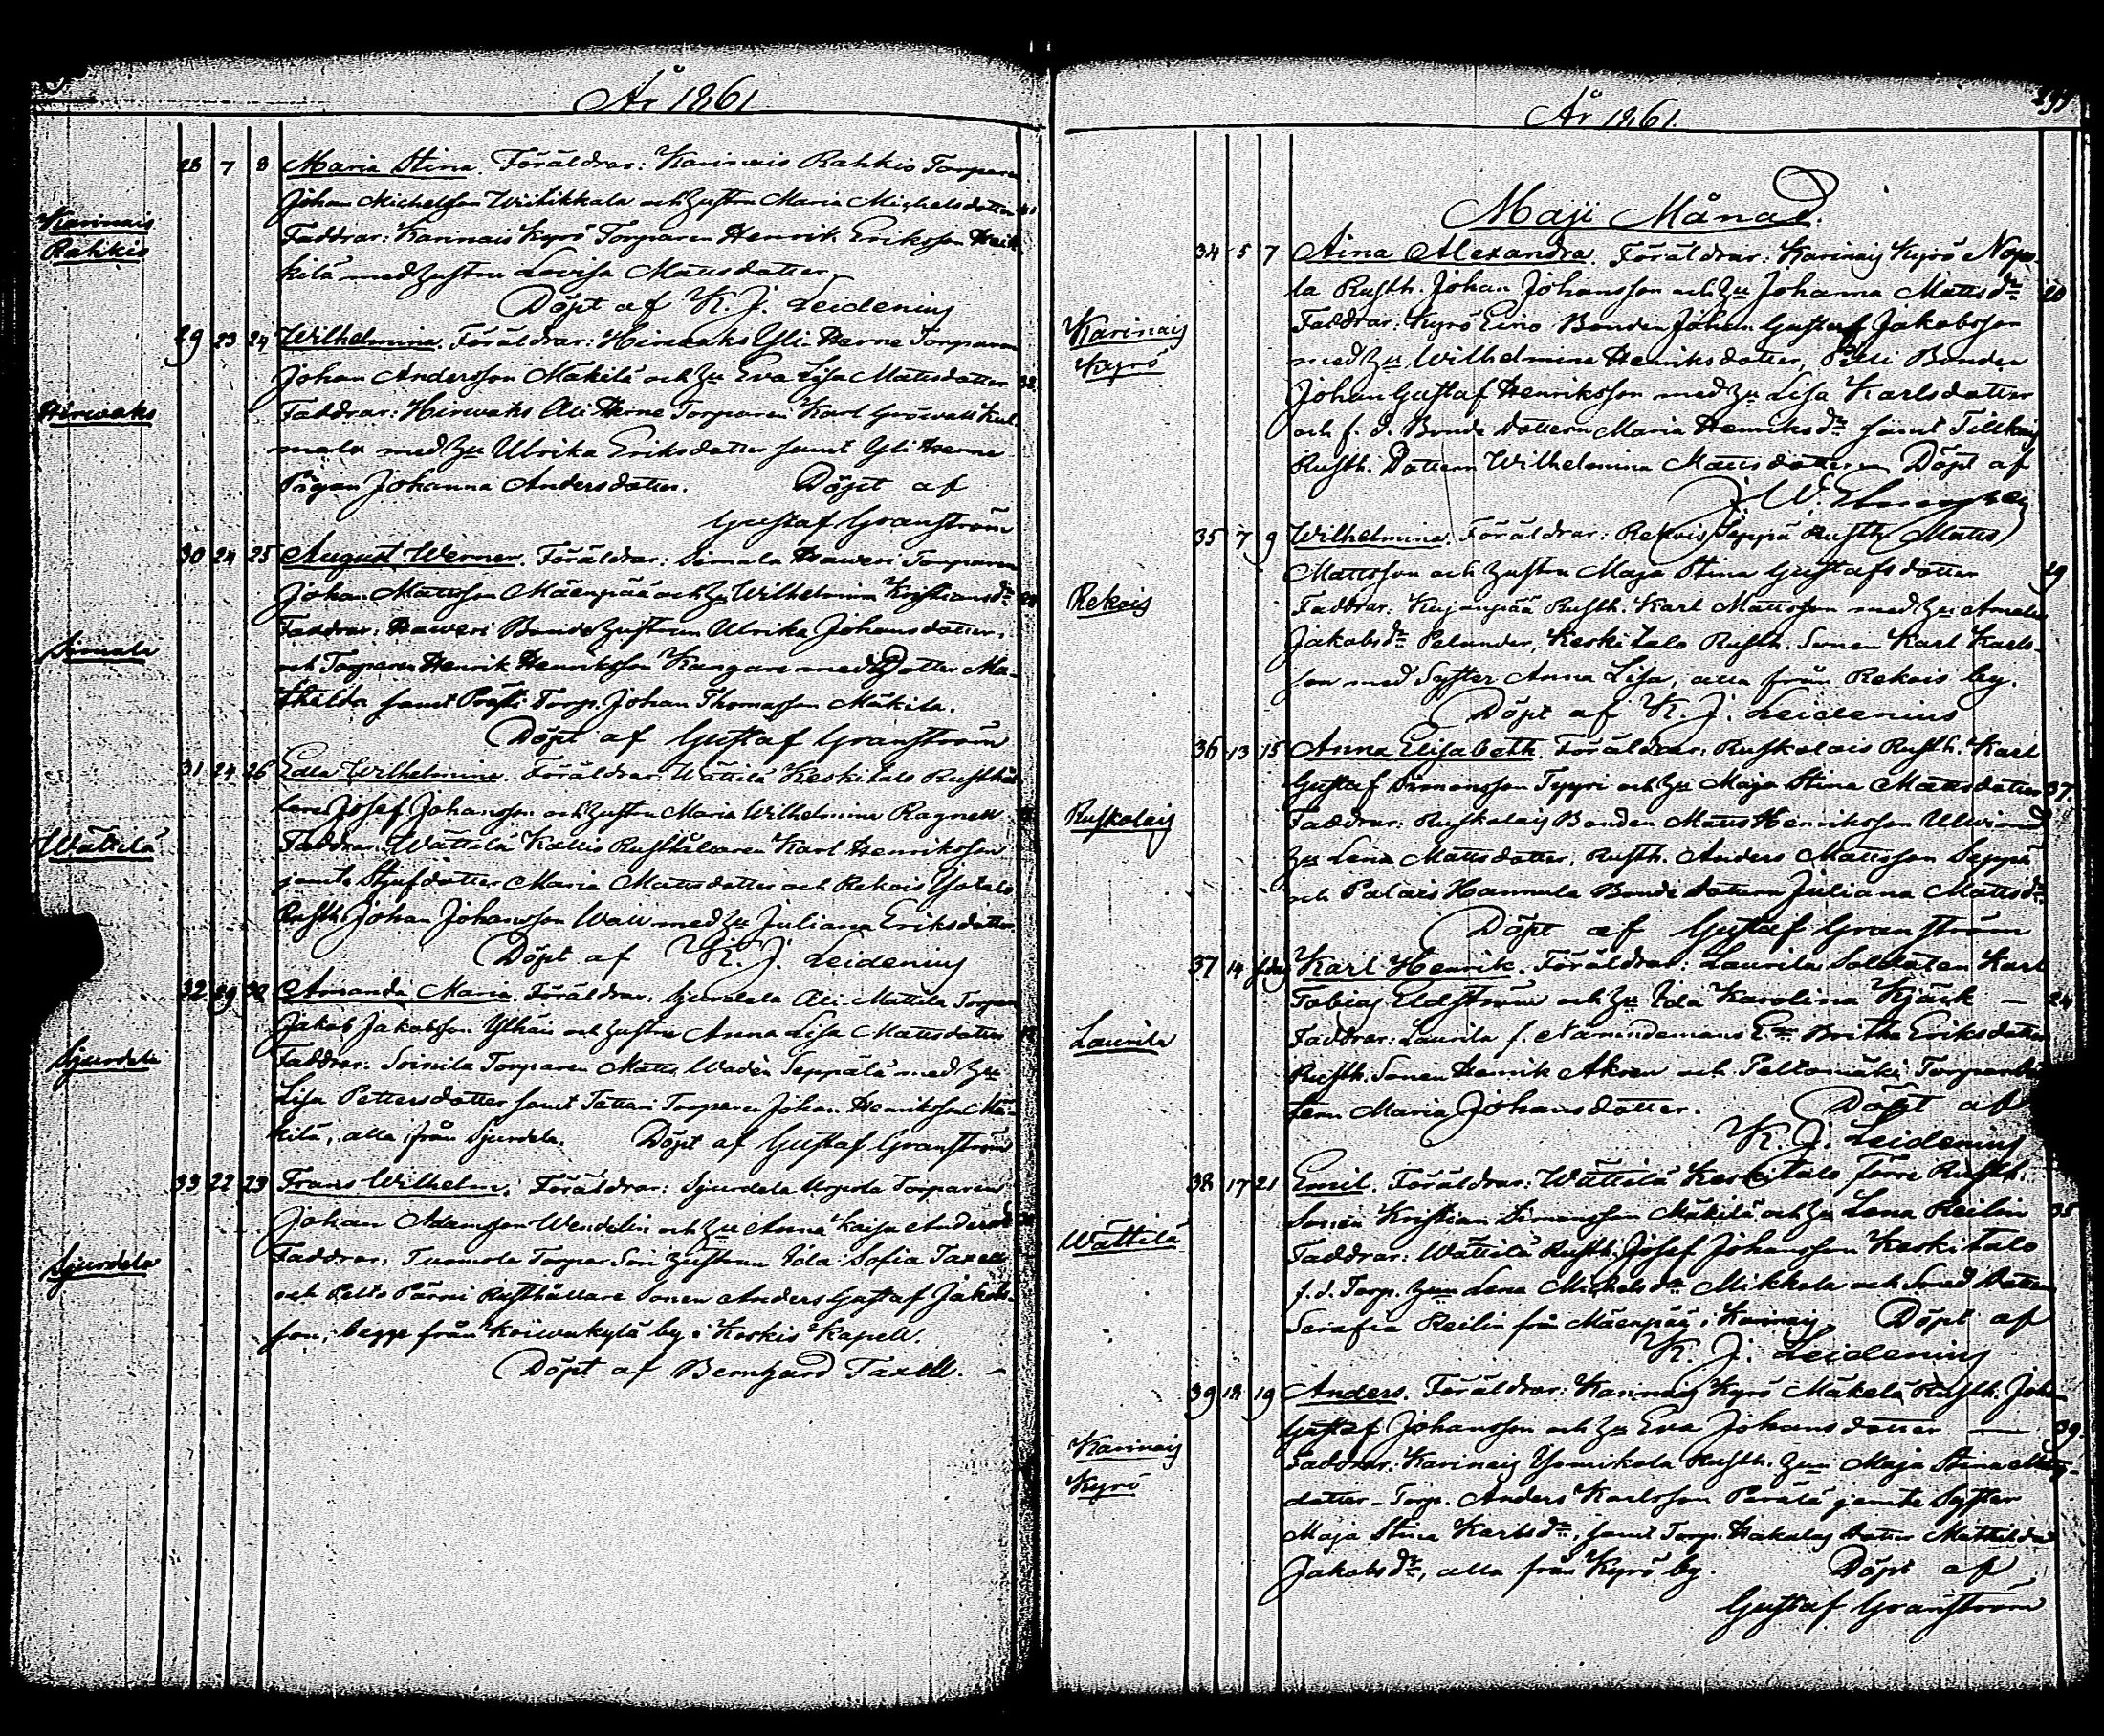 År 1861
28 7 8 Maria Stina. Föräldrar: Karinais Rahkio Torparen
Johan Michelsson Wiitikkala och hustru Maria Michelsdotter
Karinais
Rahkio
Faddrar: Karinais Kyrö Torparen Henrik Eriksson Heik-
kilä med hustru Lovisa Mattsdotter
Döpt af K. J. Leidenius
29 23 24 Wilhelmina. Föräldrar: Hirwaks Yli Herne Torparen
Johan Andersson Mäkilä och hu Eva Lisa Mattsdotter 32.
Hirwaks
Faddrar: Hirwaks Ali Herne Torparen Karl Grönvall Kul-
mala med hu Ulrika Eriksdotter samt Yli Herne
Pigan Johanna Andersdotter. Döpt af
Gustaf Granström
30 24 25 August Werner. Föräldrar: Simala Haweri Torparen
Johan Mattsson Mäenpää och hu Wilhelmina Kristiansdr
Faddrar: Haweri Bonde hustrun Ulrika Johansdotter,
Simala
och Torparen Henrik Henriksson Kangare med Dotter Ma-
thilda samt Prästi Torp. Johan Thomasson Mäkilä.
Döpt af Gustaf Granström
31 24 26 Edla Wilhelmina. Föräldrar: Wättilä Keskitalo Rusthål-
laren Josef Johansson och hustru Maria Wilhelmina Ragnell
Wättilä
Faddrar: Wättilä Kallis Rusthållaren Karl Henriksson
jemte Stjufdotter Maria Mattsdotter och Rekois Yotalo
Rusth. Johan Johansson Wall med hu Juliana Eriksdotter
Döpt af K. J. Leidenius
32 29 30 Amanda Maria. Föräldrar: Sjurdela Ali Mattila Torparen
Jakob Jakobsson Ylhäis och hustru Anna Lisa Mattsdotter
Sjurdela
Faddrar: Soinila Torparen Matts Wadén Seppälä med hu
Lisa Pettersdotter samt Tattari Torparen Johan Henriksson Mä-
kilä, alla från Sjurdela. Döpt af Gustaf Granström
33 22 23 Frans Wilhelm. Föräldrar: Sjurdela Torparen
Johan Adamsson Wendelin och hu Anna Kaisa Andersdr
Sjurdela
Faddrar: Tuomola Torpar Son hustrun Ida Sofia Taxell
och Pelto Pärni Rusthållare Sonen Anders Gustaf Jakobs-
son, begge från Koivukylä by i Koskis Kapell.
Döpt af Bernhard Taxell.
År 1861.
Maji Månad.
34 5 7 Aina Alexandra. Föräldrar: Karinais Kyrö Nop-
la Rusth. Johan Johansson och hu Johanna Mattsdr 20
Karinais
Kyrö
Faddrar: Kyrö Eino Bonden Johan Gustaf Jakobsson
med hu Wilhelmina Henriksdotter, Bonden
Johan Gustaf Henriksson med hu Lisa Karlsdotter
och f. d. Bonde Dottern Maria Henriksdr samt
Rusth. Dottern Wilhelmina Mattsdotter Döpt af
35 7 9 Wilhelmina. Föräldrar: Rekois Seppä Rusth. Matts
Mattsson och hustru Maja Stina Gustafsdotter 29
Rekois
Faddrar: Kujanpää Rusth. Karl Mattsson med hu Amalia
Jakobsdr Pelander, Keskitalo Rusth. Sonen Karl Karls-
son med Syster Anna Lisa, alla från Rekois by.
Döpt af K. J. Leidenius
36 13 15 Anna Elisabeth. Föräldrar: Ruskolais Rusth. Karl
Gustaf Simonsson Tyyri och hu Maja Stina Mattsdotter 37.
Ruskolais
Faddrar: Ruskolais Bonden Matts Henriksson Ulwi med
hu Lena Mattsdotter. Rusth. Anders Mattsson Seppä
och Palais Hannula Bonde dottern Juliana Mattsdr
Döpt af Gustaf Granström
37 14 s.dag Karl Henrik. Föräldrar: Laurila Soldaten Karl
Tobias Eldström och hu Ida Karolina Kjäck — 24
Laurila
Faddrar: Laurila f. Nämndemans Ea Britha Eriksdotter
Rusth. Sonen Henrik Akren och Peltomäki Torpardot-
tern Maria Johansdotter. Döpt af
K. J. Leidenius
38 17 21 Emil. Föräldrar: Wättilä Keskitalo förre Rusth.
Sonen Kristian Simonsson Mäkilä och hu Lena Reilin 35
Wättilä
Faddrar: Wättilä Rusth. Josef Johansson Keskitalo
f. d. Torp. hun Lena Michelsdr Mikkola och Smed Dottern
Serafia Reilin från Mäenpää i Karinais. Döpt af
K. J. Leidenius
39 18 19 Anders. Föräldrar: Karinais Kyrö Mäkelä Rusth. Johan
Gustaf Johansson och hu Eva Johansdotter — 39.
Karinais
Kyrö
Faddrar: Karinais Yomikola Rusth. hun Maja Stina Matts-
dotter - Torp. Anders Karlsson Perälä jemte Syster
Maja Stina Karlsdr, samt Torp. Hakalas Dotter Mathilda
Jakobsdr, alla från Kyrö by. Döpt af
Gustaf Granström